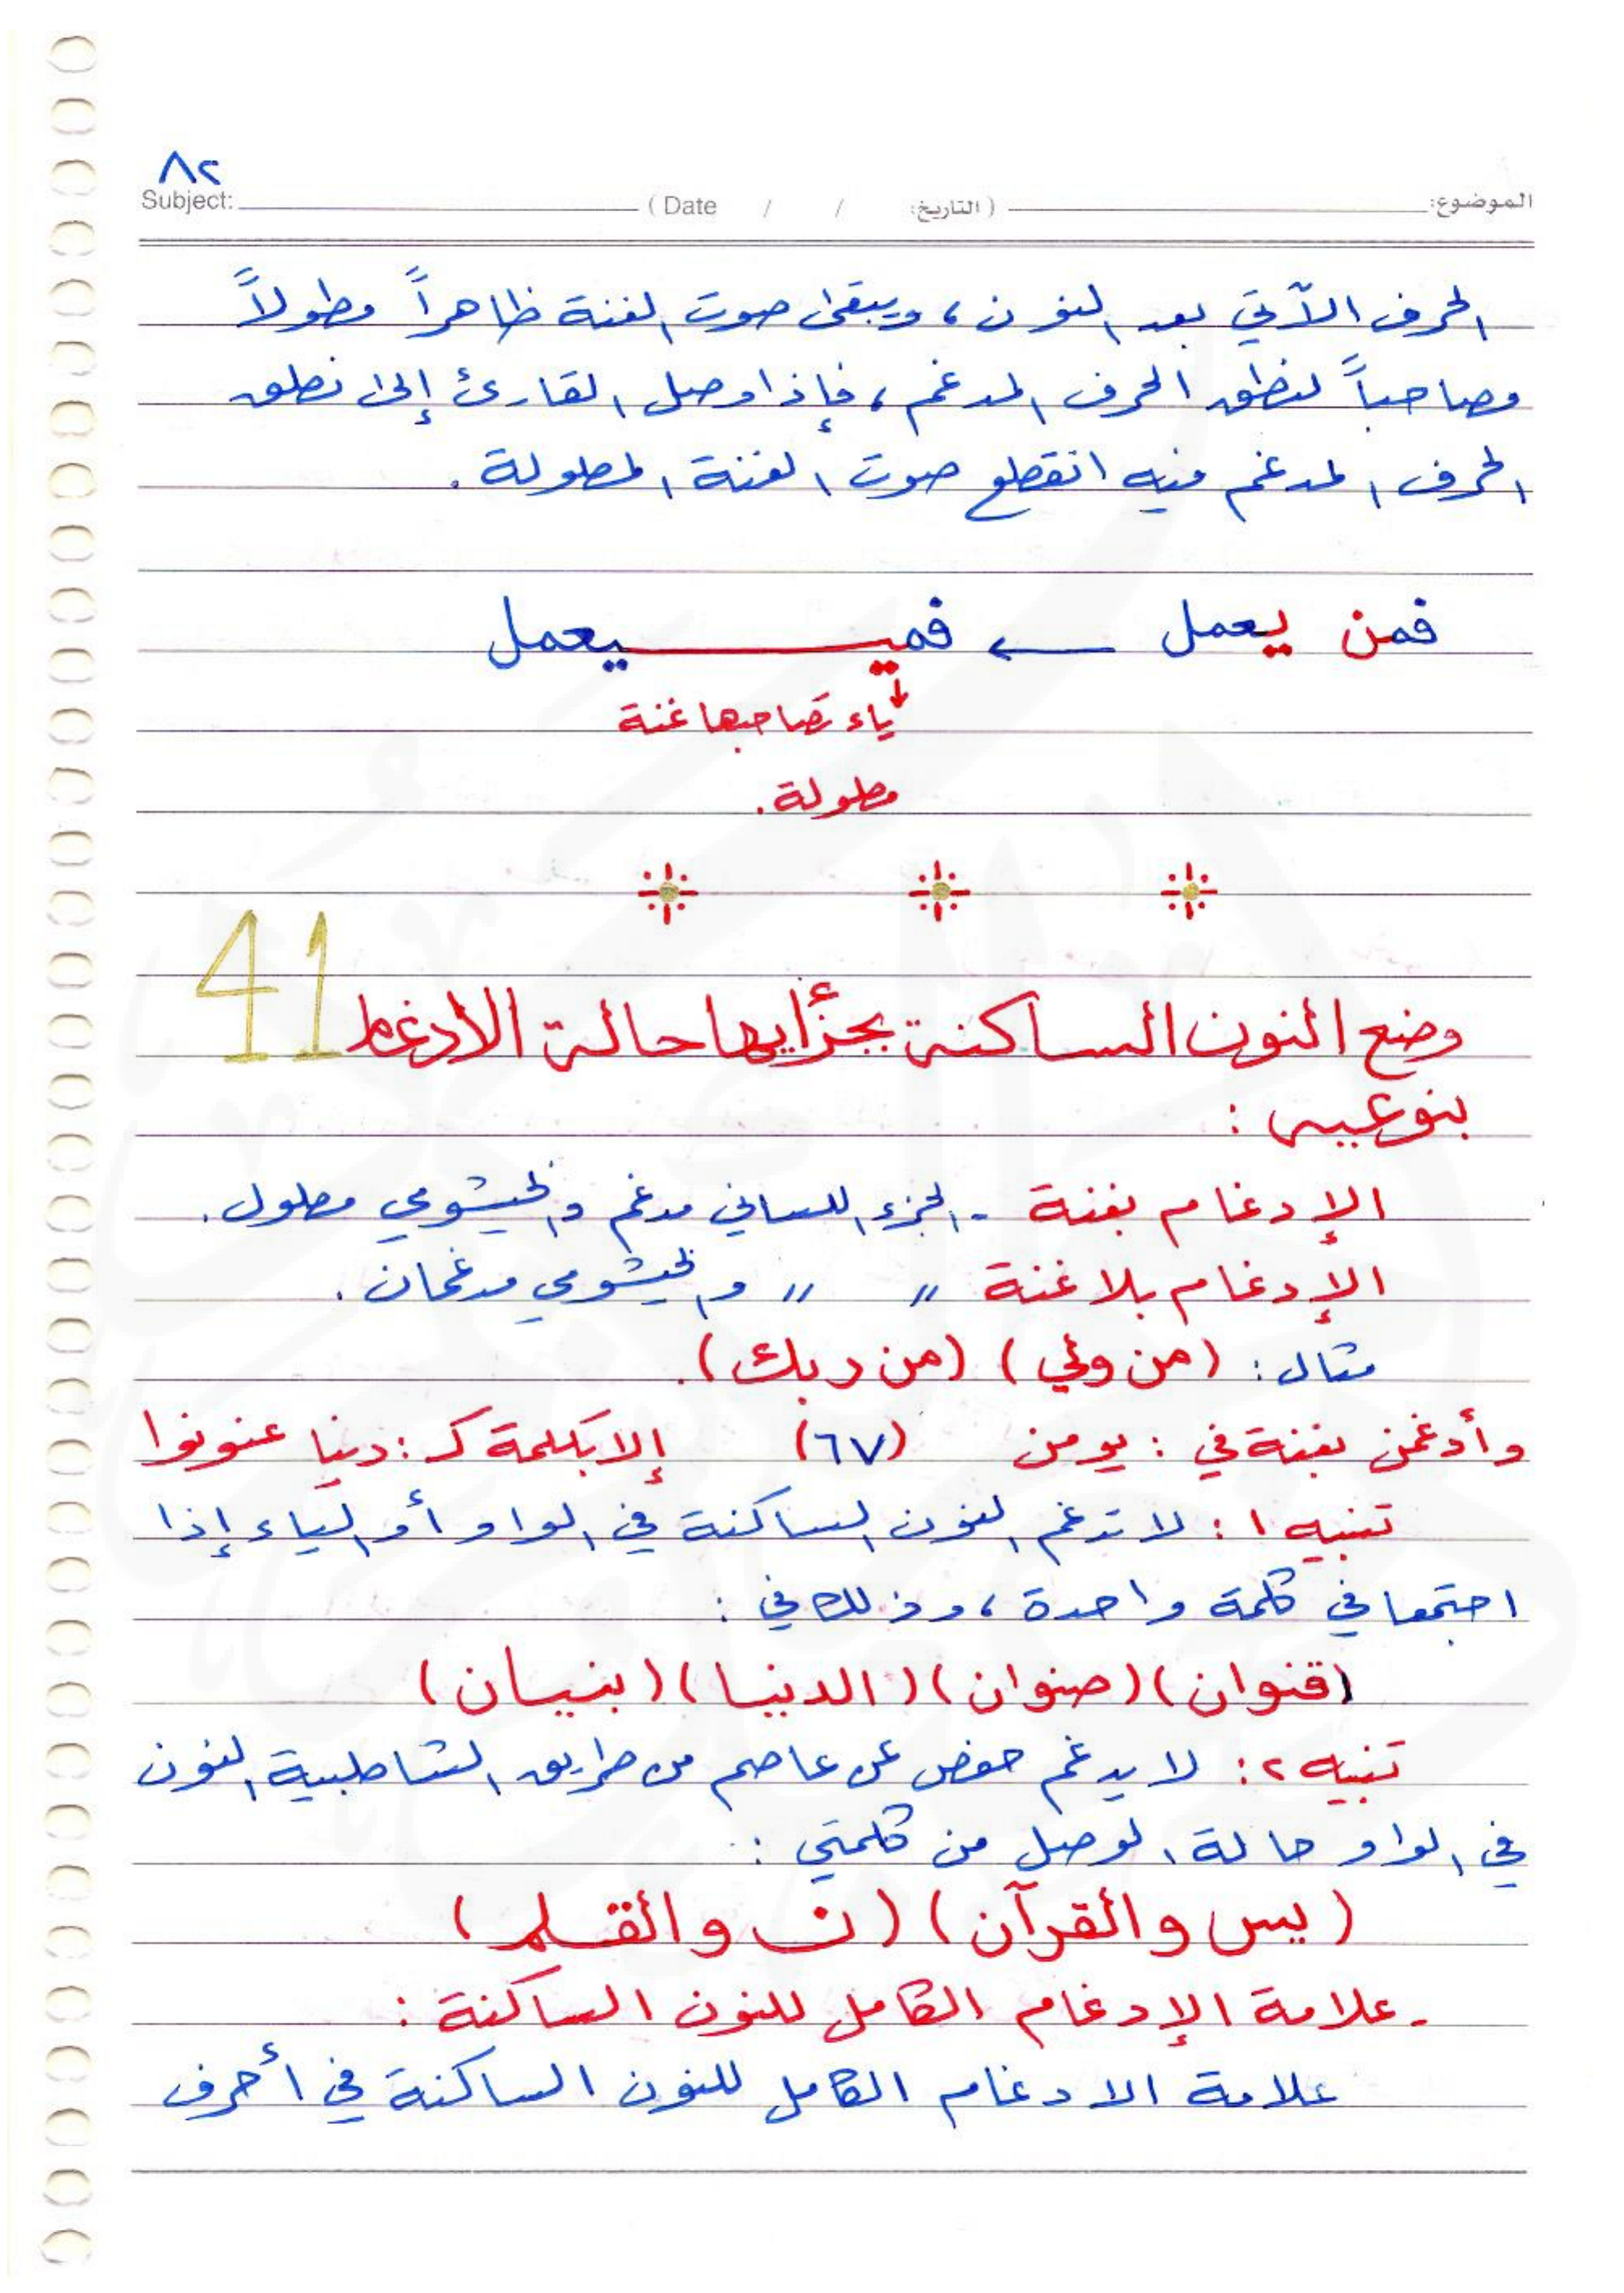 ٨٢
Subject: ( Date / / التاريخ: ) الموضوع:
الحرف الآتي بعد النون ، ويبقى صوت الغنة ظاهراً مطولاً
مصاحباً لنطق الحرف المدغم ، فإذا وصل القارئ إلى نطق
الحرف المدغم فيه انقطع صوت الغنة المطولة .
فمن يعمل ← فميـــــيعمل
ياء تصاحبها غنة
مطولة .
41
وضع النون الساكنة بجزأيها حالة الادغام
بنوعيه :
الإدغام بغنة - الجزء اللساني مدغم والخيشومي مطول .
الإدغام بلا غنة " " والخيشومي مدغمان .
مثال : (من ولي) (من ربك) .
وأدغمن بغنة في : يومن (٦٧) إلا بكلمة كـ : دنيا عنونوا
تنبيه ١ : لا تدغم النون الساكنة في الواو أو الياء إذا
اجتمعا في كلمة واحدة ، وذلك في :
(قنوان) (صنوان) (الدنيا) (بنيان)
تنبيه ٢ : لا يدغم حفص عن عاصم من طريق الشاطبية النون
في الواو حالة الوصل من كلمتي :
(يس والقرآن) (ن والقلم)
- علامة الإدغام الكامل للنون الساكنة :
علامة الادغام الكامل للنون الساكنة في أحرف